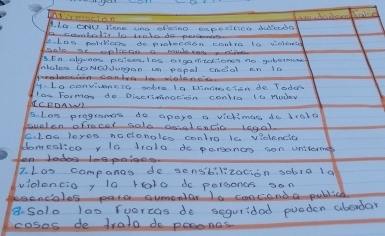 Afirmación Verdadero Falso
1. La ONU tiene una oficina específica dedicada
a combatir la trata de personas
2. Las políticas de protección contra la violencia
solo se aplican a mujeres
3. En algunos países, las organizaciones no guberna
mentales (ONG) Juegan un papel crucial en la
protección contra la violencia.
4. La convivencia sobre la Eliminación de Todas
las Formas de Discriminación contra la Mujer
(CEDAW)
5. Los programas de apoyo a víctimas de trata
suelen ofrecer solo asistencia legal.
6. Las leyes nacionales contra la violencia
doméstica y la trata de personas son uniformes
en todos los países.
7. Las campañas de sensibilización sobre la
violencia y la trata de personas son
esenciales para aumentar la conciencia pública
8. Solo las fuerzas de seguridad pueden abordar
casos de trata de personas